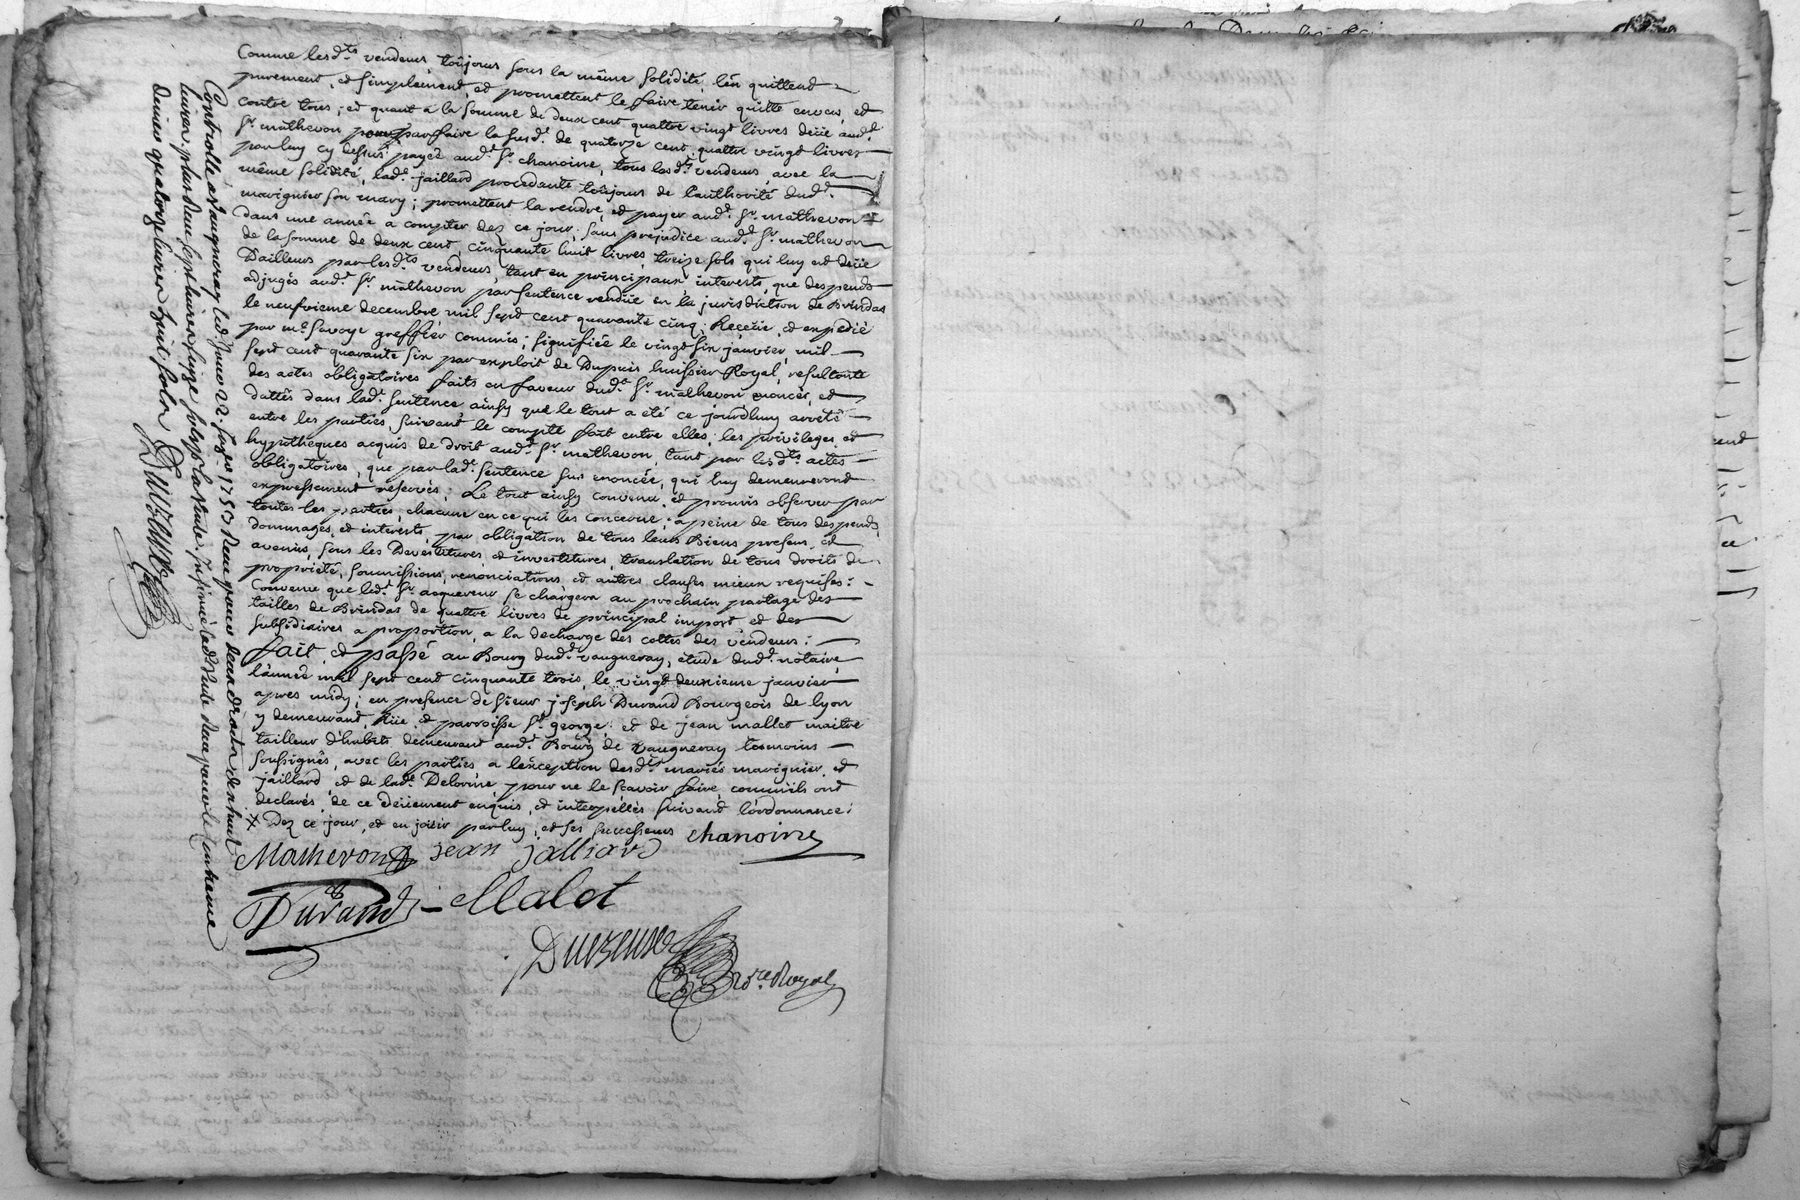 Comme lesd.ts vendeurs, toûjours sous la même solidité, l'en quittend
purement, et simplement, et promettent le faire tenir quitte envers, et
contre tous; et quant a la somme de deux cent quattre vingt livres deüe aud.t
S.r mathevon pour parfaire la susd.e de quatorze cent quattre vingt livres
par luy cy dessus payée aud.t S.r chanoine, tous lesd.ts vendeurs, avec la
même solidité, lad.e jaillard procedante toûjours de l'authorité dud.t
marignier son mary; promettent la rendre, et payer aud.t S.r mathevon
dans une année a compter dez ce jour; sans prejudice aud.t S.r mathevon
de la somme de deux cent cinquante huit livres treize sols qui luy est deüe
D'ailleurs par lesd.ts vendeurs, tant en principaux interests, que despends
adjugés aud.t S.r mathevon par sentence rendüe en la jurisdiction de Brindas
le neufvieme decembre mil sept cent quarante cinq; Receüe, et expedié
par m.e Savoye greffier commis; signifiée le vingt six janvier mil
sept cent quarante six par exploit de Dupuis huissier Royal, resultante
des actes obligatoires faits en faveur dud.t S.r mathevon enoncés, et
dattés dans lad.e sentence ainsy que le tout a été ce jourd'huy arrêté
entre les parties, suivant le compte fait entre elles; les privileges, et
hypotheques acquis de droit aud.t S.r mathevon, tant par lesd.ts actes
obligatoires, que par lad.e sentence sus enoncée, qui luy demeureront
expressement reservés; Le tout ainsy convenu, et promis observer par
toutes les parties, chacune en ce qui les concerne; a peine de tous despends,
dommages, et interests, par obligation de tous leurs Biens presens, et
avenirs, sous les Devestitures, et investitures, translation de tous droits de
proprieté, soumissions, renonciations, et autres clauses mieux requises:
Convenu que led.t S.r acquereur se chargera au prochain partage des
tailles de Brindas de quattre livres de principal import et des
subsidiaires a proportion, a la decharge des cottes des vendeurs:
fait, et passé au Bourg dud.t vaugneray, étude dud.t notaire,
l'année mil sept cent cinquante trois, le vingt deuxieme janvier
apres midy; en presence de Sieur joseph Durand Bourgeois de lyon
y demeurant, Rüe, et parroisse S.t george; et de jean mallet maitre
tailleur d'habits demeurant aud.t Bourg de Vaugneray tesmoins
soussignés, avec les parties a l'exception desd.ts mariés marignier, et
jaillard, et de lad.e Delorme pour ne le scavoir faire, comm'ils ont
declarés, de ce deüement enquis, et interpellés suivand l'ordonnance:
X Dez ce jour, et en joüir par luy, et ses successeurs chanoine
Mathevon jean jalliard
Durand Malot
Duvzeuse
n.re Royal
Controllé a Vaugneray led. jour 22. janv.er 1753 Receu pour le
livres plus Receu sept livres seize sols
deniers quatorze livres huit sols